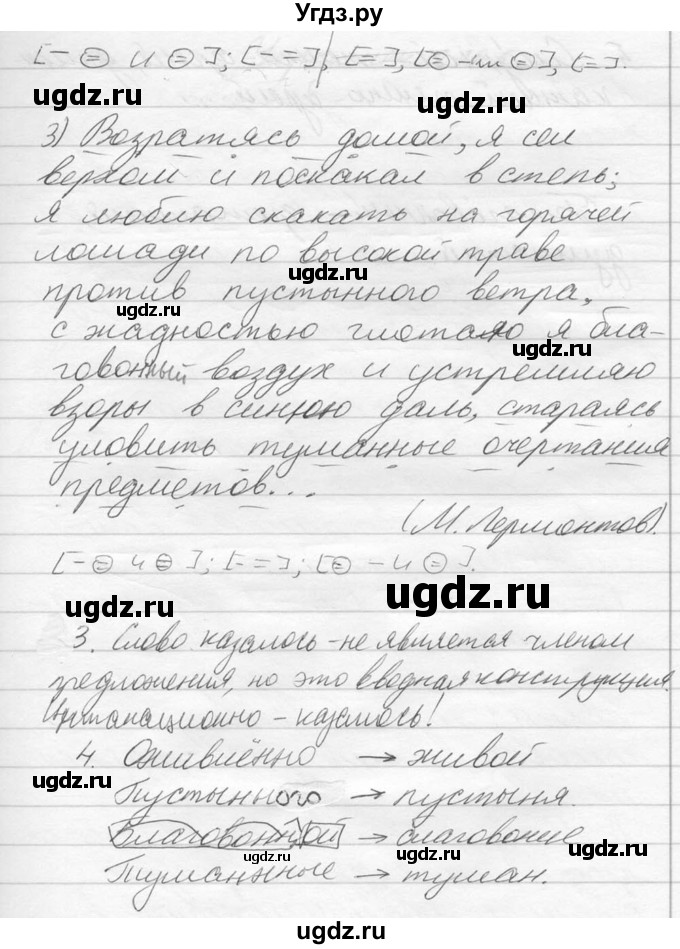 Угдз.ру
[- ⊜ и ⊜]; [- =], [=], [⊜ - и ⊜], [=].
ugdz.ru ugdz.ru
3) Возратясь домой, я сел
верхом и поскакал в степь;
я люблю скакать на горячей
лошади по высокой траве
ugdz.ru
против пустынного ветра,
с жадностью глотаю я бла-
ugdz.ru
говонный воздух и устремляю
взоры в синюю даль, стараясь
уловить туманные очертания
предметов...
(М. Лермонтов).
[- ⊜ и ⊜]; [- =]; [⊜ - и ⊜].
ugdz.ru ugdz.ru
3. Слово казалось - не является членом
предложения, но это вводная конструкция.
- казалось!
4. Оживлённо → живой
ugdz.ru
Пустынный → пустыня.
Благовонной → благовоние
ugdz.ru ugdz.ru ugdz.ru
Туманные → туман.
ugdz.ru ugdz.ru